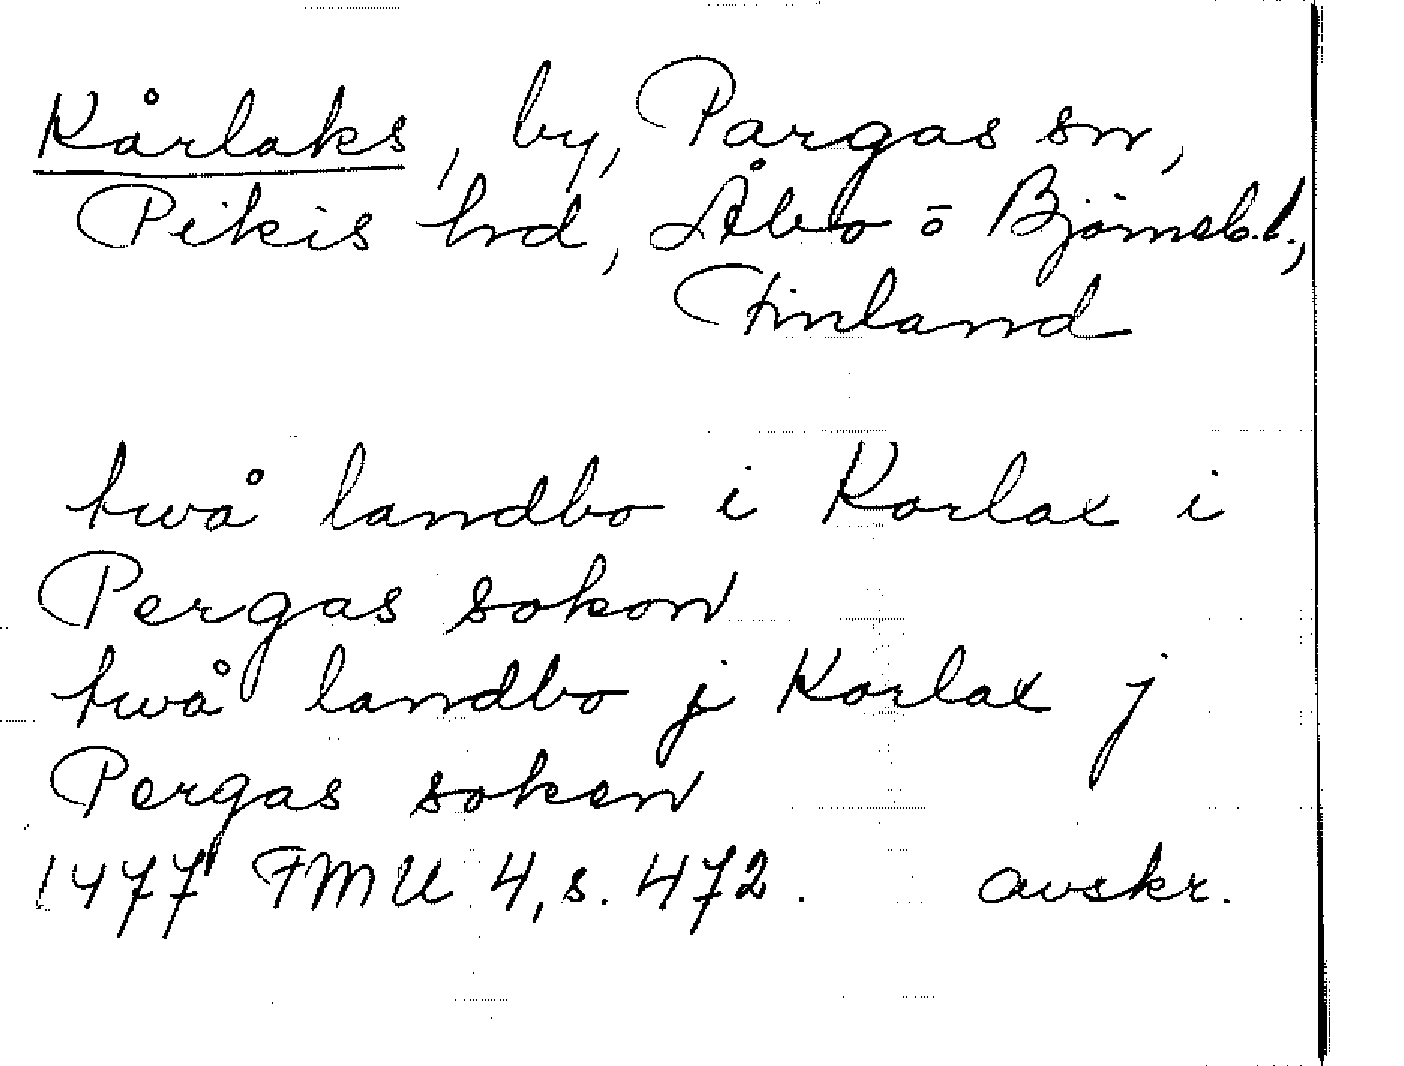 Kårlaks, by, Pargas sn,
Pikis hrd, Åbo o Björneb.l.,
Finland
twå landbo i Korlax i
Pergas sokon
twå landbo j Korlax j
Pergas soken
1477 FMU 4, s. 472. avskr.